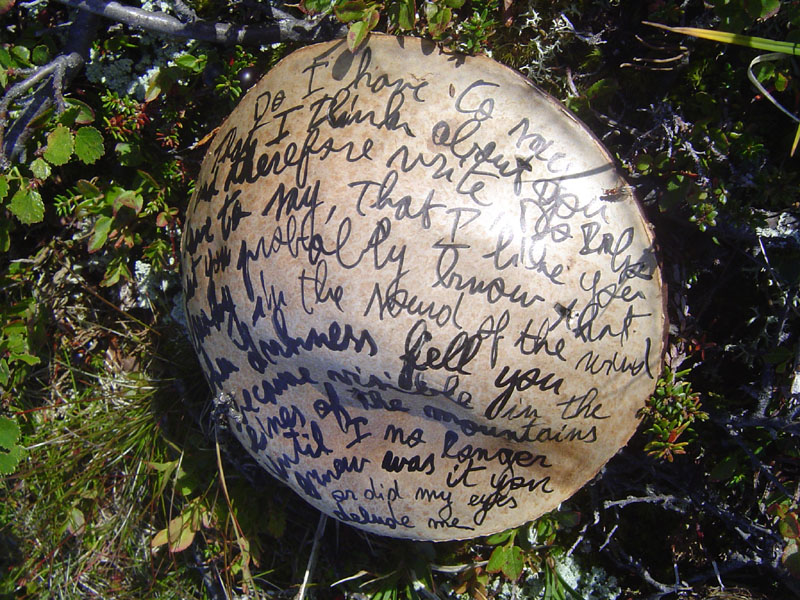 Do I have to
I Think about you
and therefore write
have to say, That I like you
but you probably know that.
in the sound of the wind
darkness fell you
became visible in the
lines of the mountains
until I no longer
know was it you
or did my eyes
delude me